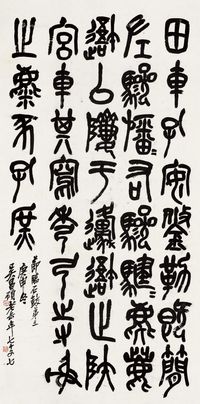 田車孔安鋚勒既簡
左驂旛右驂騝
避以隮于邍避止陕
宮車其寫秀弓寺射
麋豕孔庶
庚申冬
吳昌碩年七十七